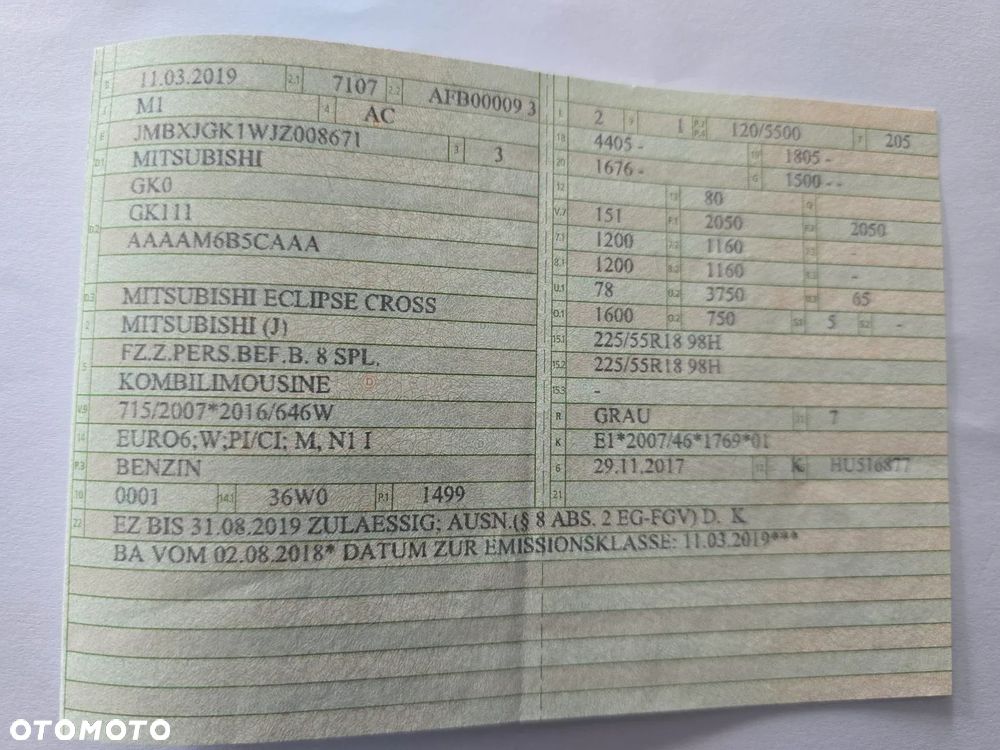 B 11.03.2019 2.1 7107 2.2 AFB00009 3
J M1 4 AC
E JMBXJGK1WJZ008671 3 3
D.1 MITSUBISHI
GK0
D.2 GK111
AAAAM6B5CAAA
D.3 MITSUBISHI ECLIPSE CROSS
2 MITSUBISHI (J)
5 FZ.Z.PERS.BEF.B. 8 SPL.
KOMBILIMOUSINE
V.9 715/2007*2016/646W
14 EURO6;W;PI/CI; M, N1 I
P.3 BENZIN
10 0001 14.1 36W0 P.1 1499
L 2 9 1 P.2 P.4 120/5500 T 205
18 4405 - 19 1805 -
20 1676 - G 1500 - -
12 13 80 Q
V.7 151 F.1 2050 F.2 2050
7.1 1200 7.2 1160 7.3 -
8.1 1200 8.2 1160 8.3 -
U.1 78 U.2 3750 U.3 65
O.1 1600 O.2 750 S.1 5 S.2 -
15.1 225/55R18 98H
15.2 225/55R18 98H
15.3 -
R GRAU 11 7
K E1*2007/46*1769*01
6 29.11.2017 17 K 16 HU516877
21
22 EZ BIS 31.08.2019 ZULAESSIG; AUSN.(§ 8 ABS. 2 EG-FGV) D. K
BA VOM 02.08.2018* DATUM ZUR EMISSIONSKLASSE: 11.03.2019***
OTOMOTO